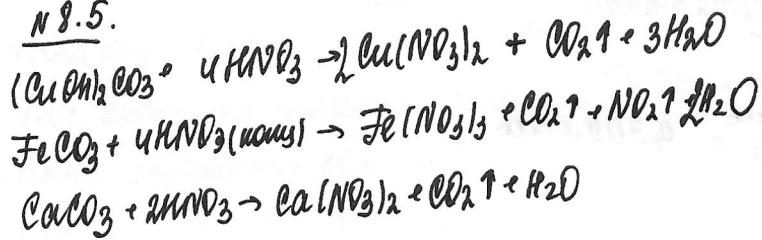 N 8.5.
(CuOH)₂CO₃ + 4HNO₃ → 2Cu(NO₃)₂ + CO₂↑ + 3H₂O
FeCO₃ + 4HNO₃(конц) → Fe(NO₃)₃ + CO₂↑ + NO₂↑ 2H₂O
CaCO₃ + 2HNO₃ → Ca(NO₃)₂ + CO₂↑ + H₂O